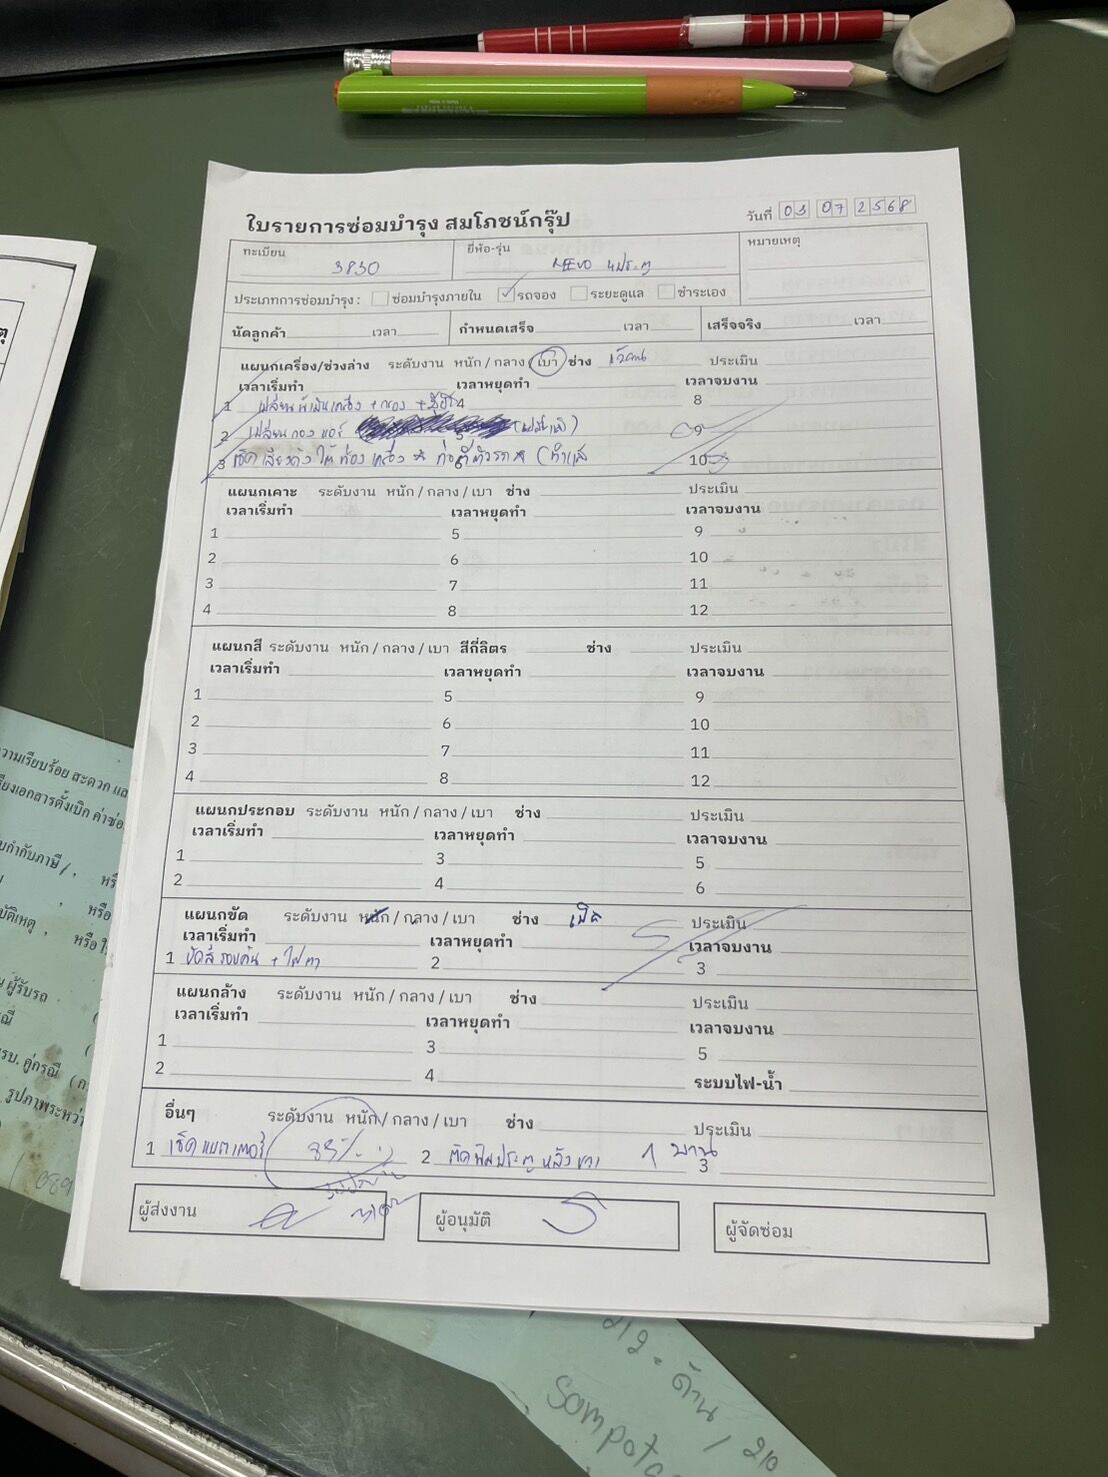 ใบรายการซ่อมบำรุง สมโภชน์กรุ๊ป
วันที่ 03 07 2568
ทะเบียน 3830 ยี่ห้อ-รุ่น REVO 4ประตู หมายเหตุ
ประเภทการซ่อมบำรุง : ซ่อมบำรุงภายใน ✓ รถจอง ระยะดูแล ชำระเอง
นัดลูกค้า เวลา กำหนดเสร็จ เวลา เสร็จจริง เวลา
แผนกเครื่อง/ช่วงล่าง ระดับงาน หนัก / กลาง / เบา ช่าง ประเมิน
เวลาเริ่มทำ เวลาหยุดทำ เวลาจบงาน
1 เปลี่ยนน้ำมันเครื่อง + กรอง + 4 8
2 เปลี่ยนกรองแอร์ 5 9
3 เช็คเสียงดังใต้ห้องเครื่อง 6 10
แผนกเคาะ ระดับงาน หนัก / กลาง / เบา ช่าง ประเมิน
เวลาเริ่มทำ เวลาหยุดทำ เวลาจบงาน
1 5 9
2 6 10
3 7 11
4 8 12
แผนกสี ระดับงาน หนัก / กลาง / เบา สีกี่ลิตร ช่าง ประเมิน
เวลาเริ่มทำ เวลาหยุดทำ เวลาจบงาน
1 5 9
2 6 10
3 7 11
4 8 12
แผนกประกอบ ระดับงาน หนัก / กลาง / เบา ช่าง ประเมิน
เวลาเริ่มทำ เวลาหยุดทำ เวลาจบงาน
1 3 5
2 4 6
แผนกขัด ระดับงาน หนัก / กลาง / เบา ช่าง ประเมิน
เวลาเริ่มทำ เวลาหยุดทำ เวลาจบงาน
1 ขัดสีรอบคัน + ไฟตา 2 3
แผนกล้าง ระดับงาน หนัก / กลาง / เบา ช่าง ประเมิน
เวลาเริ่มทำ เวลาหยุดทำ เวลาจบงาน
1 3 5
2 4 ระบบไฟ-น้ำ
อื่นๆ ระดับงาน หนัก / กลาง / เบา ช่าง ประเมิน
1 เช็คแบตเตอรี่ 2 ติดฟิล์มประตูหลังขวา 1 บาน 3
ผู้ส่งงาน ผู้อนุมัติ ผู้จัดซ่อม
วามเรียบร้อย สะดวก
รียงเอกสารตั้งเบิก ค่าซ่อ
บกำกับภาษี / , หรื
, หรือ
บัติเหตุ , หรือใ
ผู้รับรถ
รณี
รบ. คู่กรณี
รูปภาพระหว่า
089
212 - ด้าน / 210
Sompote